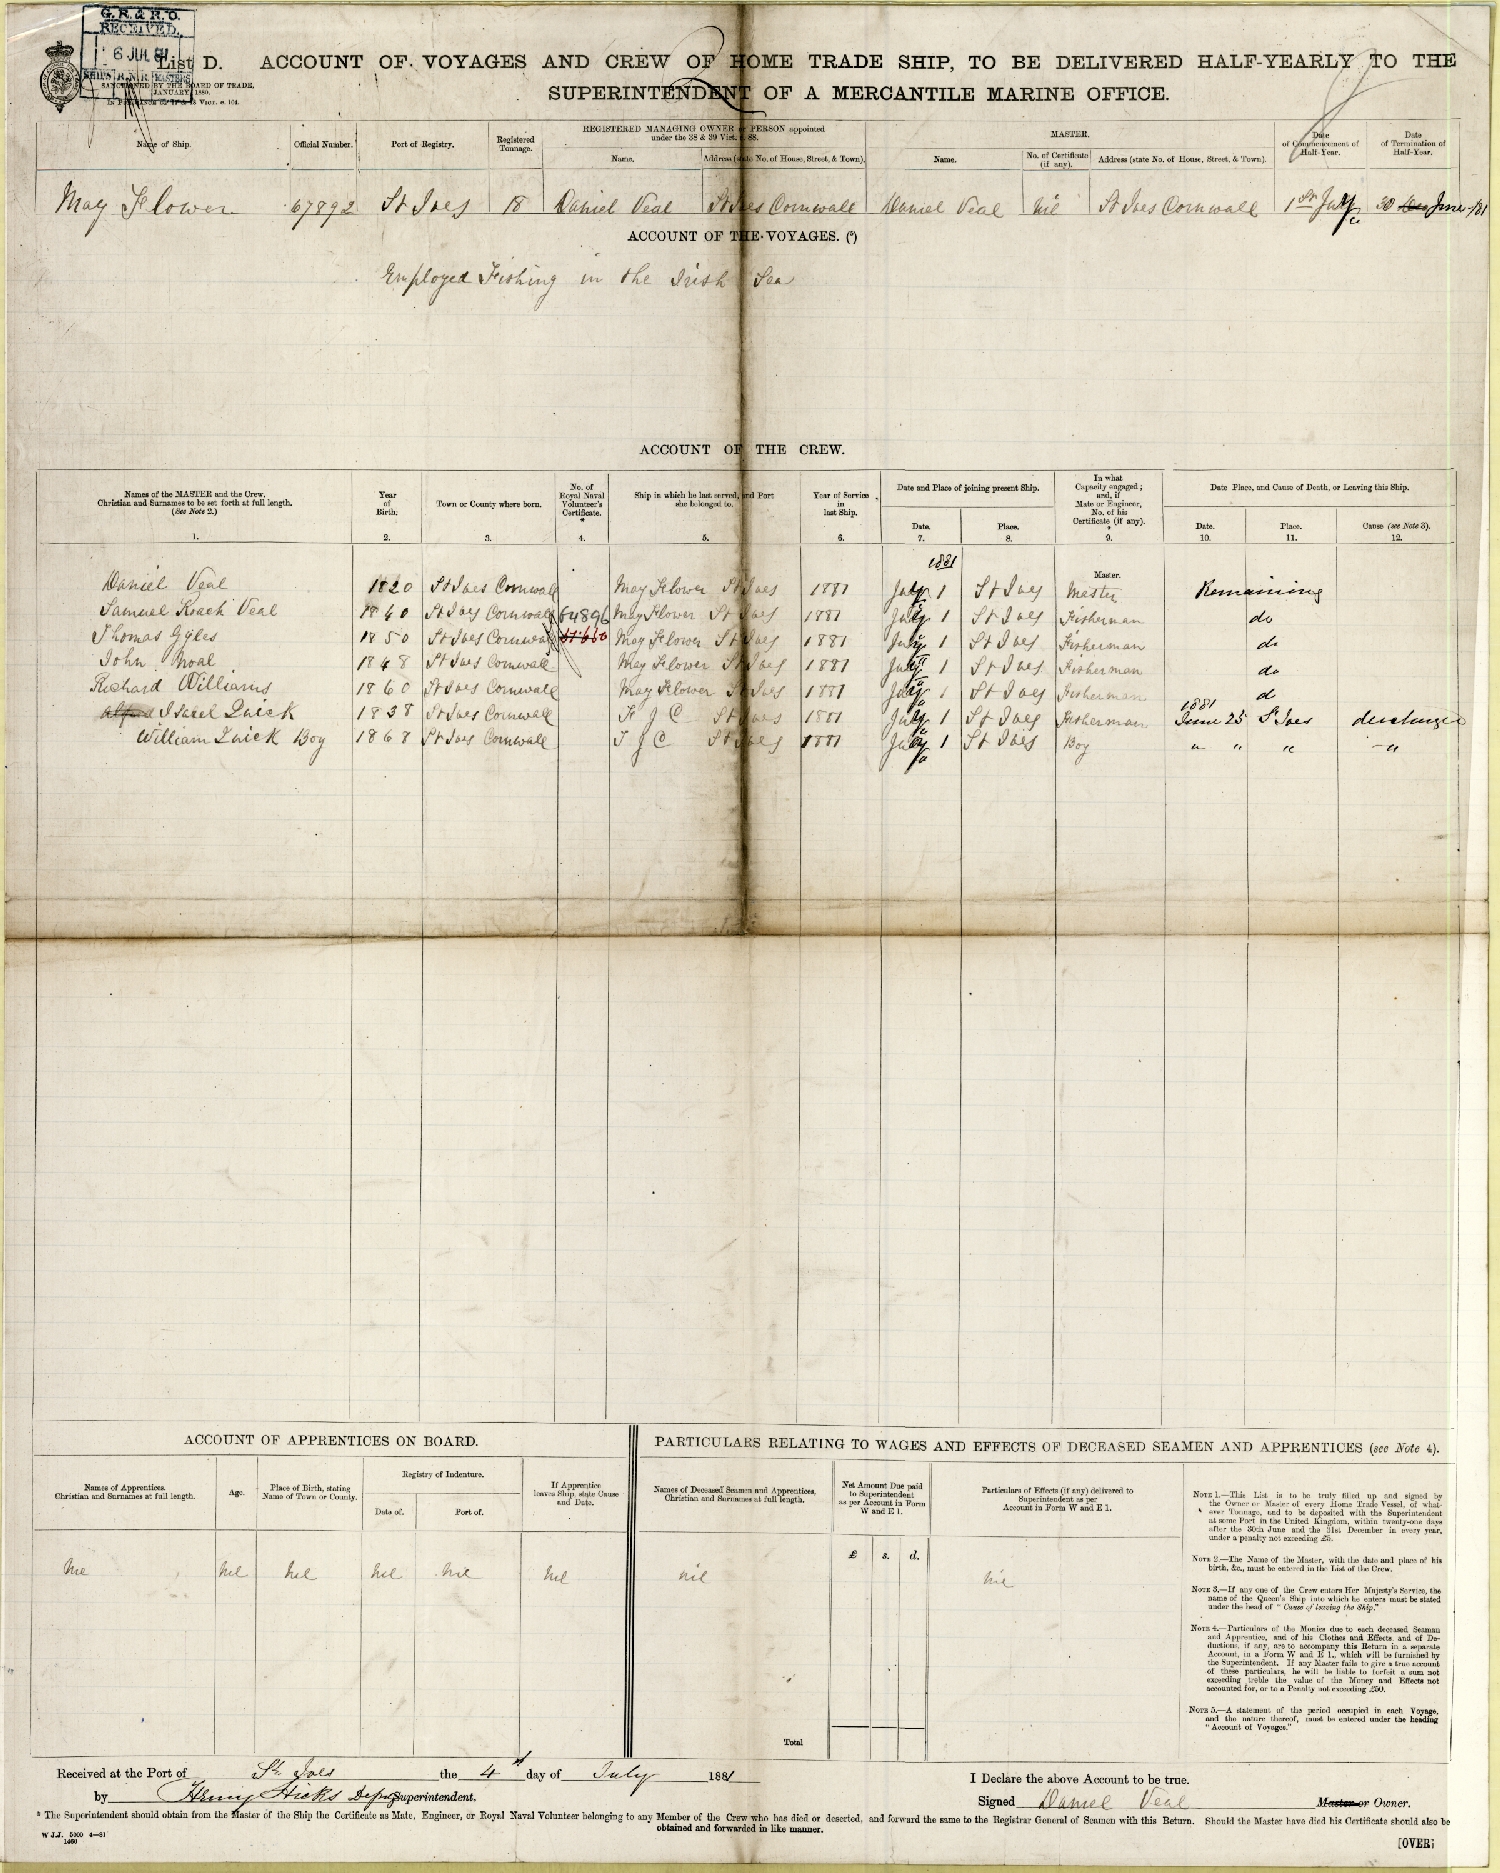 G.R. & R.O.
RECEIVED.
6 JUL 81
SHIPS R.N.R. MASTERS
List D. ACCOUNT OF VOYAGES AND CREW OF HOME TRADE SHIP, TO BE DELIVERED HALF-YEARLY TO THE
SANCTIONED BY THE BOARD OF TRADE,
JANUARY, 1880.
SUPERINTENDENT OF A MERCANTILE MARINE OFFICE.
Name of Ship. Official Number. Port of Registry. Registered Tonnage. REGISTERED MANAGING OWNER or PERSON appointed under the 38 & 39 Vict. c. 88. MASTER. Date of Commencement of Half-Year. Date of Termination of Half-Year.
Name. Address (state No. of House, Street, & Town). Name. No. of Certificate (if any). Address (state No. of House, Street, & Town).
May Flower 67892 St Ives 18 Daniel Veal St Ives Cornwall Daniel Veal nil St Ives Cornwall 1st July 30 June /81
ACCOUNT OF THE VOYAGES. (5)
Employed Fishing in the Irish Sea
ACCOUNT OF THE CREW.
Names of the MASTER and the Crew, Christian and Surnames to be set forth at full length. (See Note 2.) Year of Birth. Town or County where born. No. of Royal Naval Volunteer's Certificate. * Ship in which he last served, and Port she belonged to. Year of Service in last Ship. Date and Place of joining present Ship. In what Capacity engaged; and, if Mate or Engineer, No. of his Certificate (if any). * Date, Place, and Cause of Death, or Leaving this Ship.
Date. Place. Date. Place. Cause (see Note 3).
1. 2. 3. 4. 5. 6. 7. 8. 9. 10. 11. 12.
1881
Master.
Daniel Veal 1820 St Ives Cornwall May Flower St Ives 1881 July 1 St Ives Master Remaining
Samuel Roach Veal 1860 St Ives Cornwall 64896 May Flower St Ives 1881 July 1 St Ives Fisherman do
Thomas Gyles 1850 St Ives Cornwall May Flower St Ives 1881 July 1 St Ives Fisherman do
John Noal 1848 St Ives Cornwall May Flower St Ives 1881 July 1 St Ives Fisherman do
Richard Williams 1860 St Ives Cornwall May Flower St Ives 1881 July 1 St Ives Fisherman do
1881
Isacel Quick 1838 St Ives Cornwall F J C St Ives 1881 July 1 St Ives Fisherman June 25 St Ives discharged
William Quick Boy 1868 St Ives Cornwall F J C St Ives 1881 July 1 St Ives Boy " " " - "
ACCOUNT OF APPRENTICES ON BOARD. PARTICULARS RELATING TO WAGES AND EFFECTS OF DECEASED SEAMEN AND APPRENTICES (see Note 4).
Names of Apprentices. Christian and Surnames at full length. Age. Place of Birth, stating Name of Town or County. Registry of Indenture. Date of. Port of. If Apprentice leaves Ship, state Cause and Date.
Names of Deceased Seamen and Apprentices, Christian and Surnames at full length. Net Amount Due paid to Superintendent as per Account in Form W and E 1. Particulars of Effects (if any) delivered to Superintendent as per Account in Form W and E 1.
£ s. d.
nil nil nil nil nil nil nil nil
Total
NOTE 1.—This List is to be truly filled up and signed by
the Owner or Master of every Home Trade Vessel, of what-
ever Tonnage, and to be deposited with the Superintendent
at some Port in the United Kingdom, within twenty-one days
after the 30th June and the 31st December in every year,
under a penalty not exceeding £5.
NOTE 2.—The Name of the Master, with the date and place of his
birth, &c., must be entered in the List of the Crew.
NOTE 3.—If any one of the Crew enters Her Majesty's Service, the
name of the Queen's Ship into which he enters must be stated
under the head of "Cause of leaving the Ship."
NOTE 4.—Particulars of the Monies due to each deceased Seaman
and Apprentice, and of his Clothes and Effects, and of De-
ductions, if any, are to accompany this Return in a separate
Account, in a Form W and E 1., which will be furnished by
the Superintendent. If any Master fails to give a true account
of these particulars, he will be liable to forfeit a sum not
exceeding treble the value of the Money and Effects not
accounted for, or to a Penalty not exceeding £50.
NOTE 5.—A statement of the period occupied in each Voyage,
and the nature thereof, must be entered under the heading
"Account of Voyages."
Received at the Port of St. Ives the 4th day of July 1881
by Henry Hicks Depy Superintendent.
I Declare the above Account to be true.
Signed Daniel Veal Master or Owner.
* The Superintendent should obtain from the Master of the Ship the Certificate as Mate, Engineer, or Royal Naval Volunteer belonging to any Member of the Crew who has died or deserted, and forward the same to the Registrar General of Seamen with this Return. Should the Master have died his Certificate should also be
obtained and forwarded in like manner.
W J.J. 5000 4—81
1466
[OVER]